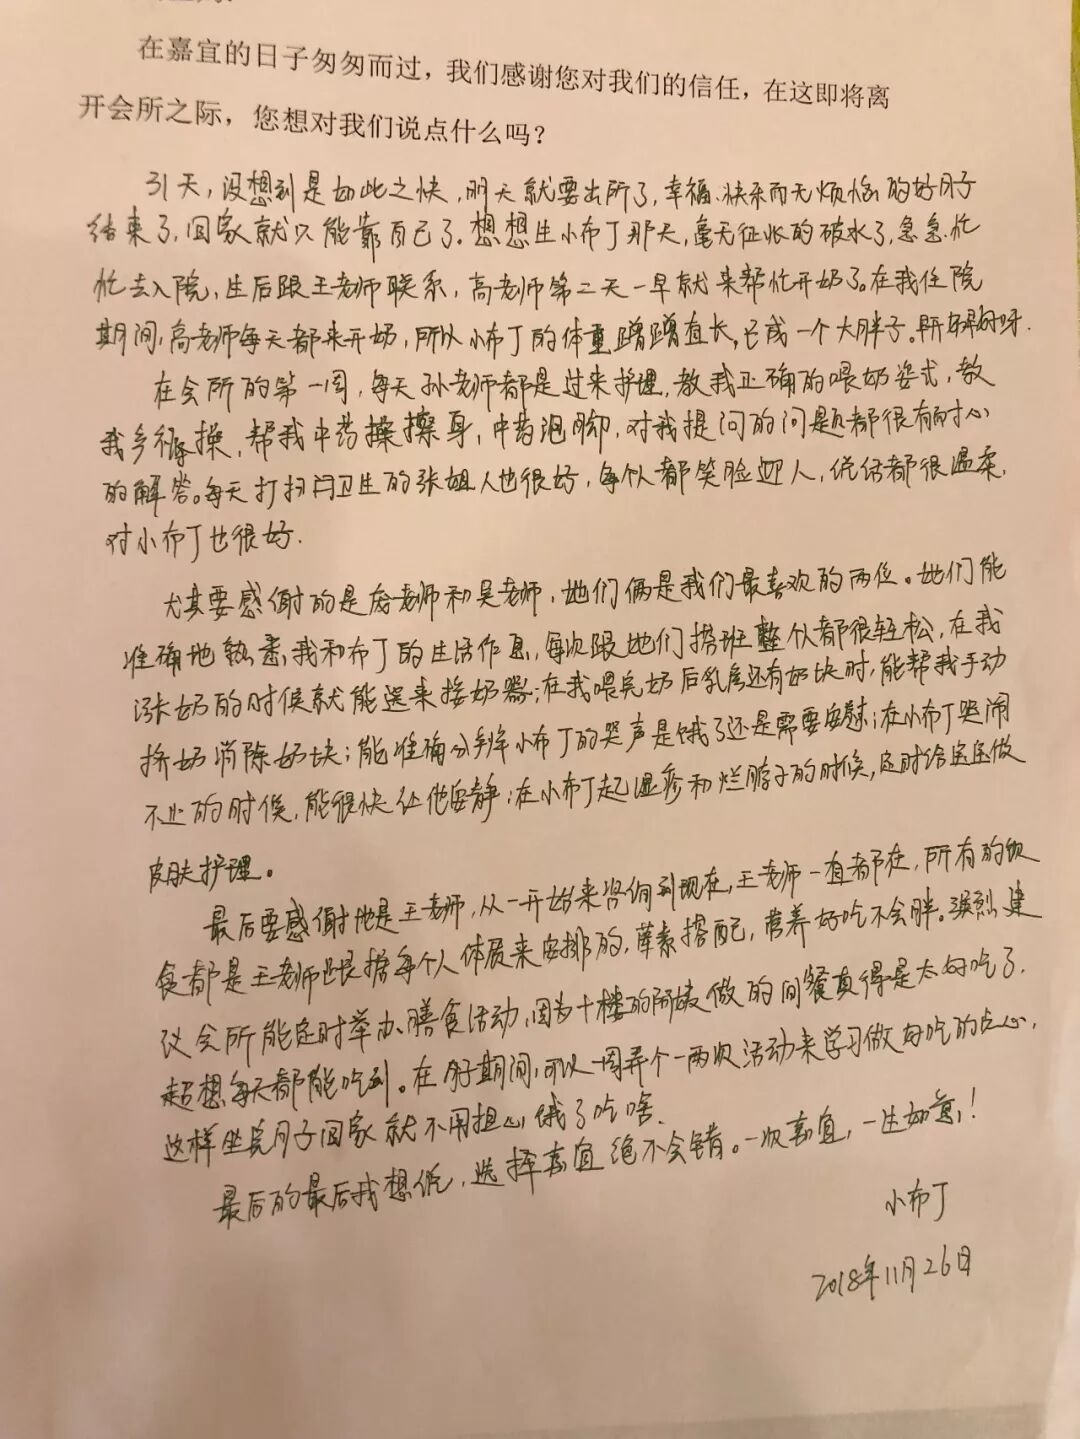 在嘉宜的日子匆匆而过，我们感谢您对我们的信任，在这即将离
开会所之际，您想对我们说点什么吗？
31天，没想到是如此之快，明天就要出所了，幸福、快乐而无烦恼的好月子
结束了，回家就只能靠自己了。想想生小布丁那天，毫无征兆的破水了，急急忙
忙去入院，生后跟王老师联系，高老师第二天一早就来帮忙开奶了。在我住院
期间，高老师每天都来开奶，所以小布丁的体重蹭蹭直长，已成一个大胖子。
在会所的第一周，每天孙老师都是过来护理，教我正确的喂奶姿式，教
我产褥操，帮我中药擦擦身，中药泡脚，对我提问的问题都很有耐心
的解答。每天打扫卫生的张姐人也很好，每个人都笑脸迎人，说话都很温柔，
对小布丁也很好.
尤其要感谢的是老师和吴老师，她们俩是我们最喜欢的两位。她们能
准确地熟悉我和布丁的生活作息，每次跟她们搭班整个人都很轻松，在我
涨奶的时候就能送来接奶器；在我喂完奶后乳房还有奶块时，能帮我手动
挤奶消除奶块；能准确分辨小布丁的哭声是饿了还是需要安慰；在小布丁哭闹
不止的时候，能很快让他安静；在小布丁起湿疹和烂脖子的时候，定时给宝宝做
皮肤护理。
最后要感谢的是王老师，从一开始来咨询到现在，王老师一直都在，所有的饮
食都是王老师跟据每个人体质来安排的，荤素搭配，营养好吃不会胖。强烈建
议会所能定时举办膳食活动，因为十楼的阿姨做的间餐真得是太好吃了，
超想每天都能吃到。在月子期间，可以一周弄个一两次活动来学习做好吃的点心，
这样坐完月子回家就不用担心饿了吃啥.
最后的最后我想说，选择嘉宜绝不会错。一次嘉宜，一生如意！
小布丁
2018年11月26日